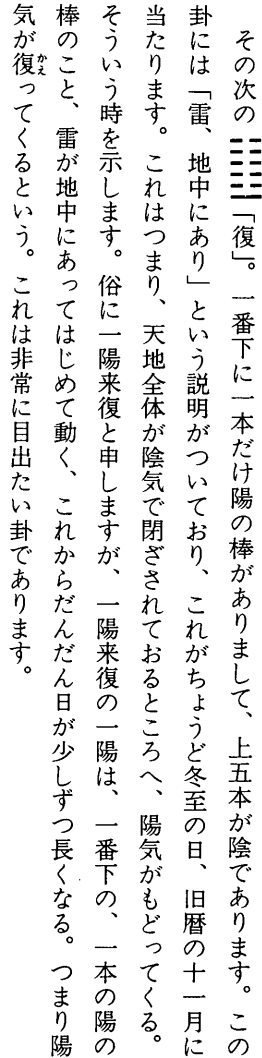 その次の䷗「復」。一番下に一本だけ陽の棒がありまして、上五本が陰であります。この
卦には「雷、地中にあり」という説明がついており、これがちょうど冬至の日、旧暦の十一月に
当たります。これはつまり、天地全体が陰気で閉ざされておるところへ、陽気がもどってくる。
そういう時を示します。俗に一陽来復と申しますが、一陽来復の一陽は、一番下の、一本の陽の
棒のこと、雷が地中にあってはじめて動く、これからだんだん日が少しずつ長くなる。つまり陽
気が復かえってくるという。これは非常に目出たい卦であります。